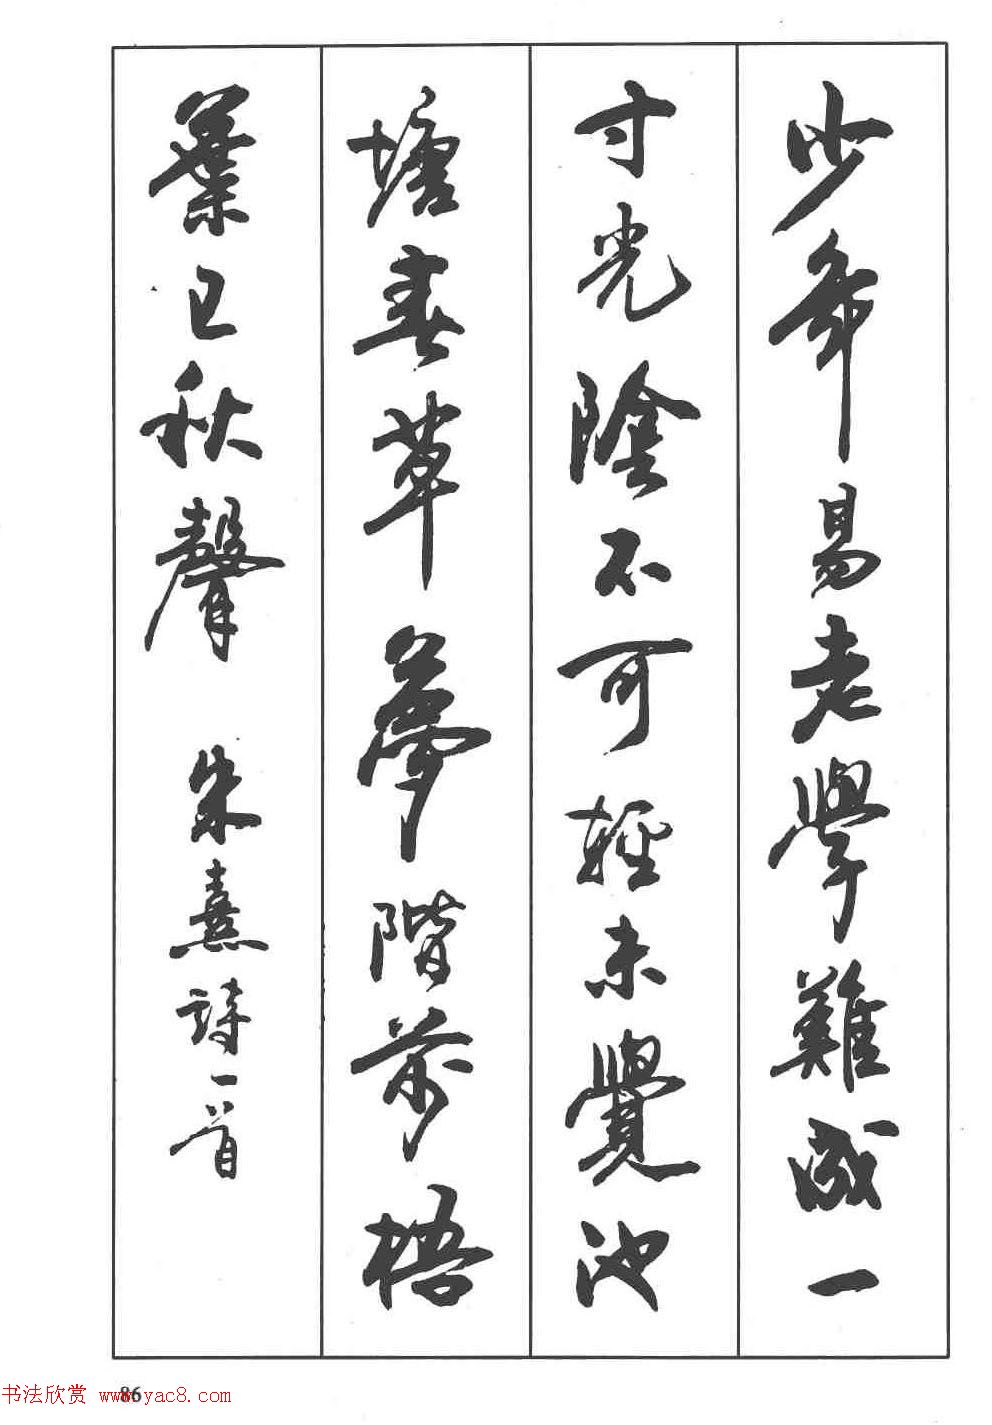 少年易老學難成一
寸光陰不可輕未覺池
塘春草夢階前梧
葉已秋聲 朱熹詩一首
86
书法欣赏 www.yac8.com